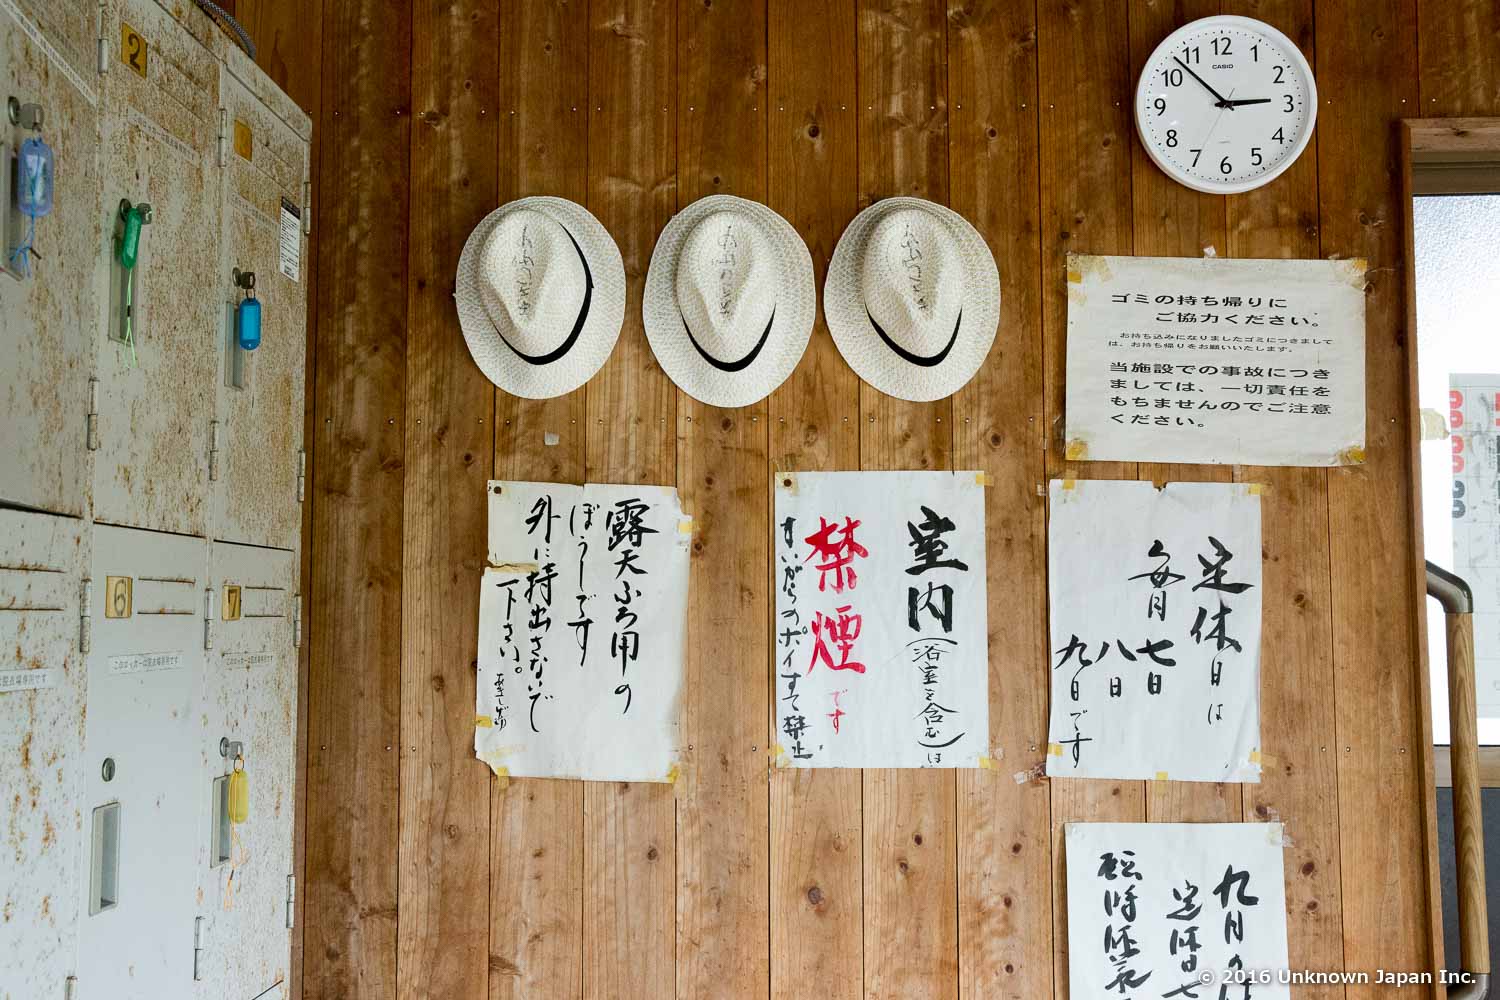 12
1
2
3
4
5
6
7
8
9
10
11
CASIO
2
6
7
このロッカーは質点場専用です
ゴミの持ち帰りに
ご協力ください。
お持ち込みになりましたゴミにつきまして
は、お持ち帰りをお願いいたします。
当施設での事故につき
ましては、一切責任を
もちませんのでご注意
ください。
露天ふろ用の
ぼうしです
外に持出さないで
下さい。
あきしげゆ
室内(浴室も含む)は
禁煙です
すいがらのポイすて禁止
定休日は
毎月七日
八日
九日です
九月の
定休日七
臨時休業
© 2016 Unknown Japan Inc.